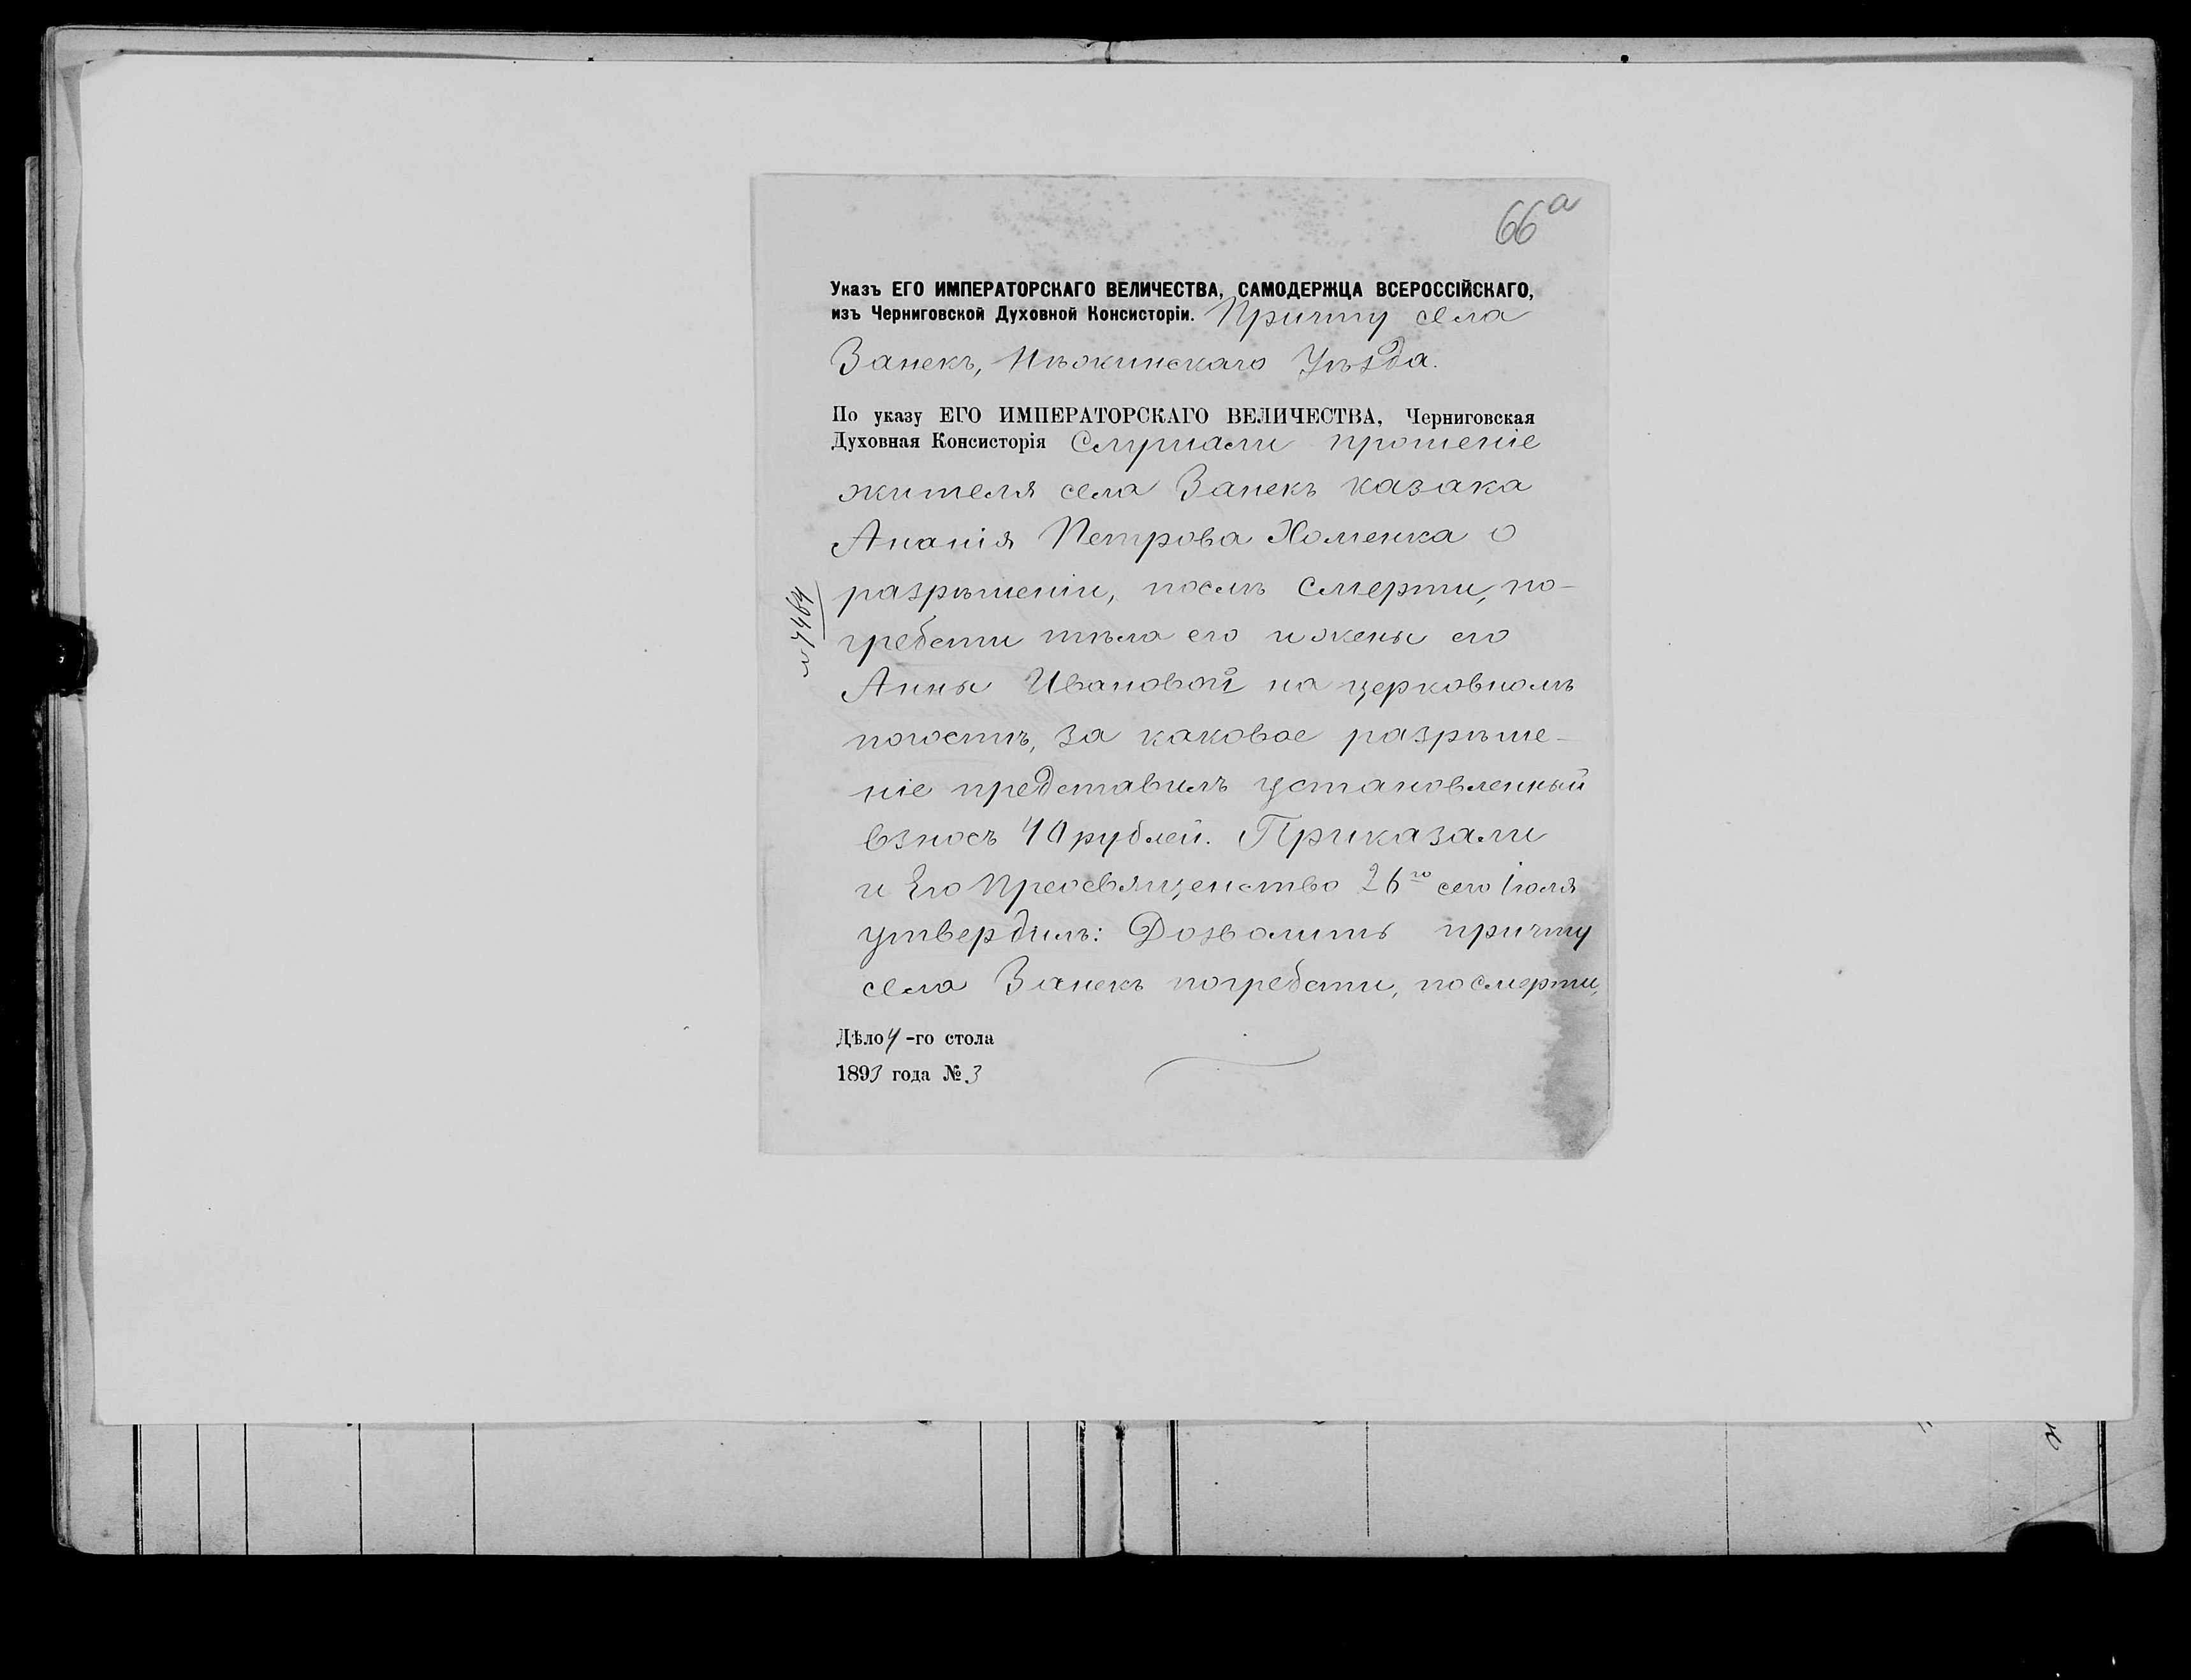 66а
Указъ ЕГО ИМПЕРАТОРСКАГО ВЕЛИЧЕСТВА, САМОДЕРЖЦА ВСЕРОССІЙСКАГО,
изъ Черниговской Духовной Консисторіи. Причту села
Занекъ, Нѣжинскаго Уѣзда.
По указу ЕГО ИМПЕРАТОРСКАГО ВЕЛИЧЕСТВА, Черниговская
Духовная Консисторія Слушали прошеніе
жителя села Занекъ казака
Ананія Петрова Хоменка о
разрѣшеніи, послѣ смерти, по-
гребсти тѣла его и жены его
Анны Ивановой на церковномъ
погостѣ, за каковое разрѣше-
ніе представилъ установленный
взносъ 40 рублей. Приказали
и Его Преосвященство 26го сего Іюля
утвердилъ: Дозволить причту
села Занекъ погребсти, по смерти,
Дѣло 4-го стола
1893 года № 3